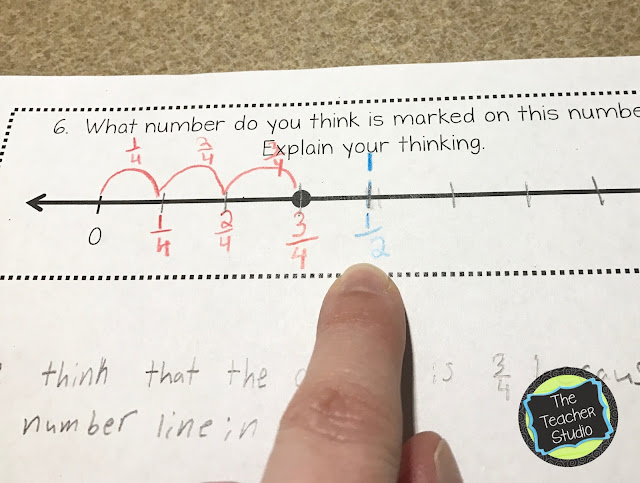 6. What number do you think is marked on this numbe
Explain your thinking.
1/4 3/4 3/4
0 1/4 2/4 3/4 1/2
think that the is 3/4
number line in
The
Teacher
Studio